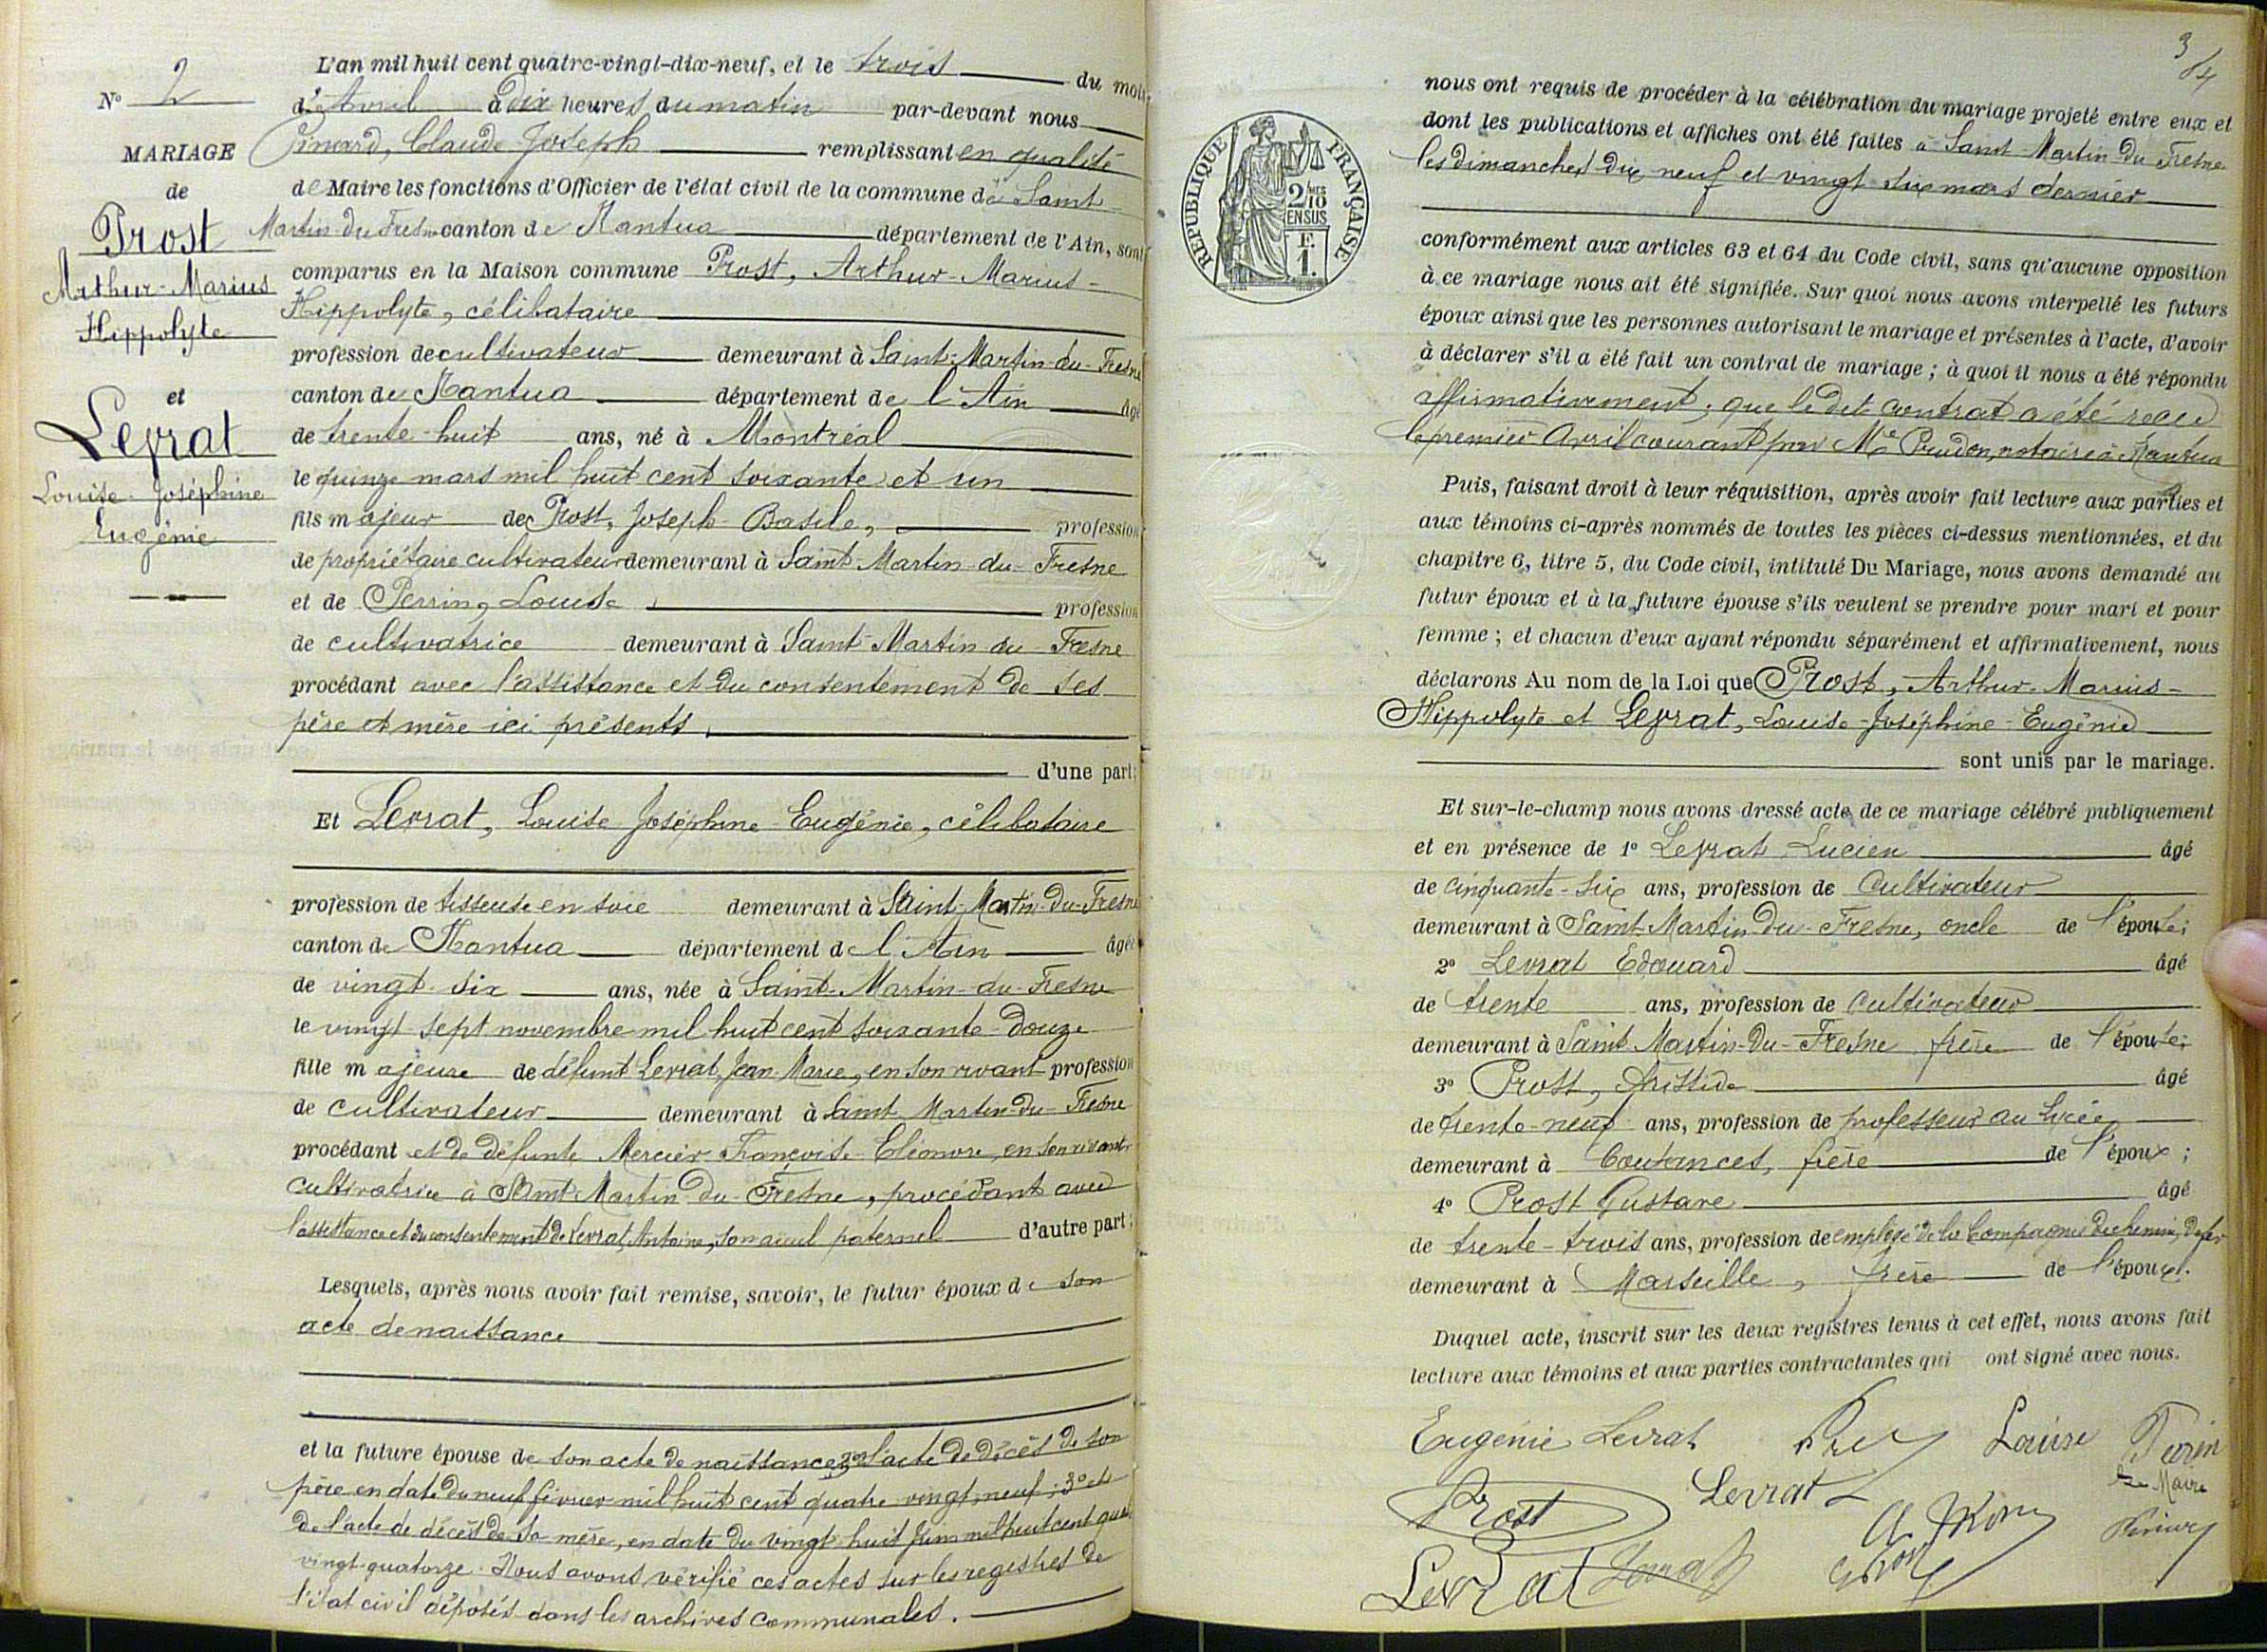 N° 2
MARIAGE
de
Prost
Arthur-Marius
Hippolyte
et
Levrat
Louise-Joséphine
Eugénie
L'an mil huit cent quatre-vingt-dix-neuf, et le trois du mois
d'Avril à dix heures du matin par-devant nous
Pinard, Claude-Joseph remplissant en qualité
de Maire les fonctions d'Officier de l'état civil de la commune de Saint
Martin-du-Fresne canton de Nantua département de l'Ain, sont
comparus en la Maison commune Prost, Arthur-Marius-
Hippolyte, célibataire
profession de cultivateur demeurant à Saint-Martin-du-Fresne
canton de Nantua département de l'Ain âgé
de trente-huit ans, né à Montréal
le quinze mars mil huit cent soixante et un
fils majeur de Prost, Joseph-Basile, profession
de propriétaire cultivateur demeurant à Saint-Martin-du-Fresne
et de Perrin, Louise profession
de cultivatrice demeurant à Saint-Martin du Fresne
procédant avec l'assistance et du consentement de ses
père et mère ici présents,
d'une part;
Et Levrat, Louise Joséphine Eugénie, célibataire
profession de tisseuse en soie demeurant à Saint-Martin-du-Fresne
canton de Nantua département de l'Ain âgée
de vingt-six ans, née à Saint-Martin-du-Fresne
le vingt-sept novembre mil huit cent soixante-douze
fille majeure de défunt Levrat, Jean-Marie, en son vivant profession
de cultivateur demeurant à Saint Martin-du-Fresne
procédant et de défunte Mercier Françoise-Eléonore, en son vivant
cultivatrice à Saint-Martin-du-Fresne, procédant avec
l'assistance et du consentement de Levrat, Antoine, son aïeul paternel d'autre part;
Lesquels, après nous avoir fait remise, savoir, le futur époux de son
acte de naissance
et la future épouse de son acte de naissance, 2° de l'acte de décès de son
père en date du neuf février mil huit cent quatre-vingt-neuf; 3° et
de l'acte de décès de sa mère, en date du vingt-huit Juin mil huit cent quatre
vingt-quatorze. Nous avons vérifié ces actes sur les registres de
l'état civil déposés dans les archives communales.
3
RÉPUBLIQUE FRANÇAISE
2/10 MES
EN SUS
F.
1.
nous ont requis de procéder à la célébration du mariage projeté entre eux et
dont les publications et affiches ont été faites à Saint-Martin-du-Fresne
les dimanches dix-neuf et vingt-six mars dernier
conformément aux articles 63 et 64 du Code civil, sans qu'aucune opposition
à ce mariage nous ait été signifiée. Sur quoi nous avons interpellé les futurs
époux ainsi que les personnes autorisant le mariage et présentes à l'acte, d'avoir
à déclarer s'il a été fait un contrat de mariage; à quoi il nous a été répondu
affirmativement; que le dit contrat a été reçu
le premier Avril courant par Me Prudon, notaire à Nantua
Puis, faisant droit à leur réquisition, après avoir fait lecture aux parties et
aux témoins ci-après nommés de toutes les pièces ci-dessus mentionnées, et du
chapitre 6, titre 5, du Code civil, intitulé Du Mariage, nous avons demandé au
futur époux et à la future épouse s'ils veulent se prendre pour mari et pour
femme; et chacun d'eux ayant répondu séparément et affirmativement, nous
déclarons Au nom de la Loi que Prost, Arthur-Marius-
Hippolyte et Levrat, Louise-Joséphine-Eugénie
sont unis par le mariage.
Et sur-le-champ nous avons dressé acte de ce mariage célébré publiquement
et en présence de 1° Levrat Lucien âgé
de cinquante-six ans, profession de Cultivateur
demeurant à Saint-Martin-du-Fresne, oncle de l'épouse;
2° Levrat Edouard âgé
de trente ans, profession de Cultivateur
demeurant à Saint-Martin-du-Fresne frère de l'épouse;
3° Prost, Aristide âgé
de trente-neuf ans, profession de professeur au Lycée
demeurant à Coutances, frère de l'époux;
4° Prost Gustave âgé
de trente-trois ans, profession de employé de la Compagnie du chemin de fer
demeurant à Marseille, frère de l'époux.
Duquel acte, inscrit sur les deux registres tenus à cet effet, nous avons fait
lecture aux témoins et aux parties contractantes qui ont signé avec nous.
Eugénie Levrat Louise Perrin
Prost Levrat Le Maire
Levrat